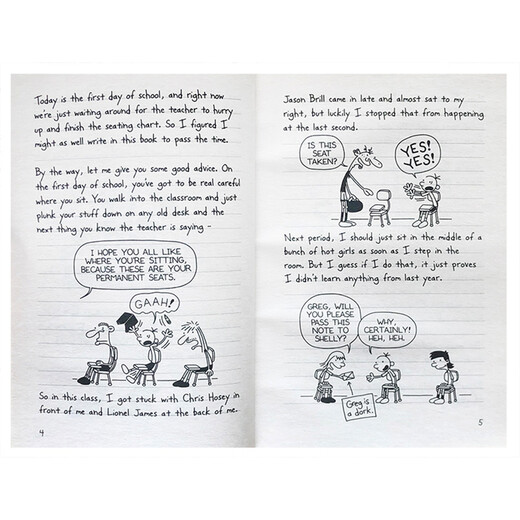 Today is the first day of school, and right now
we're just waiting around for the teacher to hurry
up and finish the seating chart. So I figured I
might as well write in this book to pass the time.
By the way, let me give you some good advice. On
the first day of school, you've got to be real careful
where you sit. You walk into the classroom and just
plunk your stuff down on any old desk and the
next thing you know the teacher is saying -
I HOPE YOU ALL LIKE
WHERE YOU'RE SITTING,
BECAUSE THESE ARE YOUR
PERMANENT SEATS.
GAAH!
So in this class, I got stuck with Chris Hosey in
front of me and Lionel James at the back of me.
4
Jason Brill came in late and almost sat to my
right, but luckily I stopped that from happening
at the last second.
IS THIS
SEAT
TAKEN?
YES!
YES!
Next period, I should just sit in the middle of a
bunch of hot girls as soon as I step in the
room. But I guess if I do that, it just proves
I didn't learn anything from last year.
GREG, WILL
YOU PLEASE
PASS THIS
NOTE TO
SHELLY?
WHY,
CERTAINLY!
HEH, HEH.
Greg is
a dork.
5